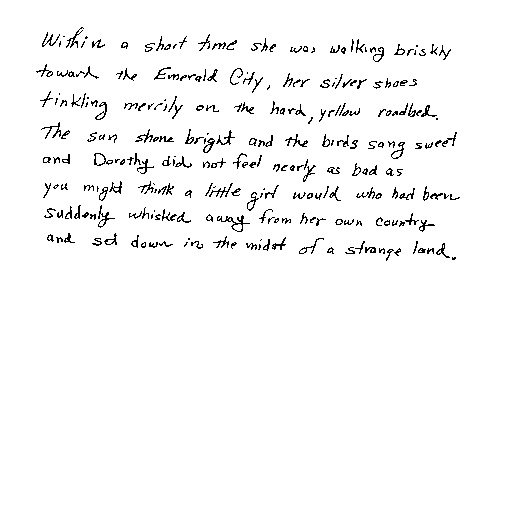 Within a short time she was walking briskly
toward the Emerald City, her silver shoes
tinkling merrily on the hard, yellow roadbed.
The sun shone bright and the birds sang sweet
and Dorothy did not feel nearly as bad as
you might think a little girl would who had been
suddenly whisked away from her own country
and set down in the midst of a strange land.